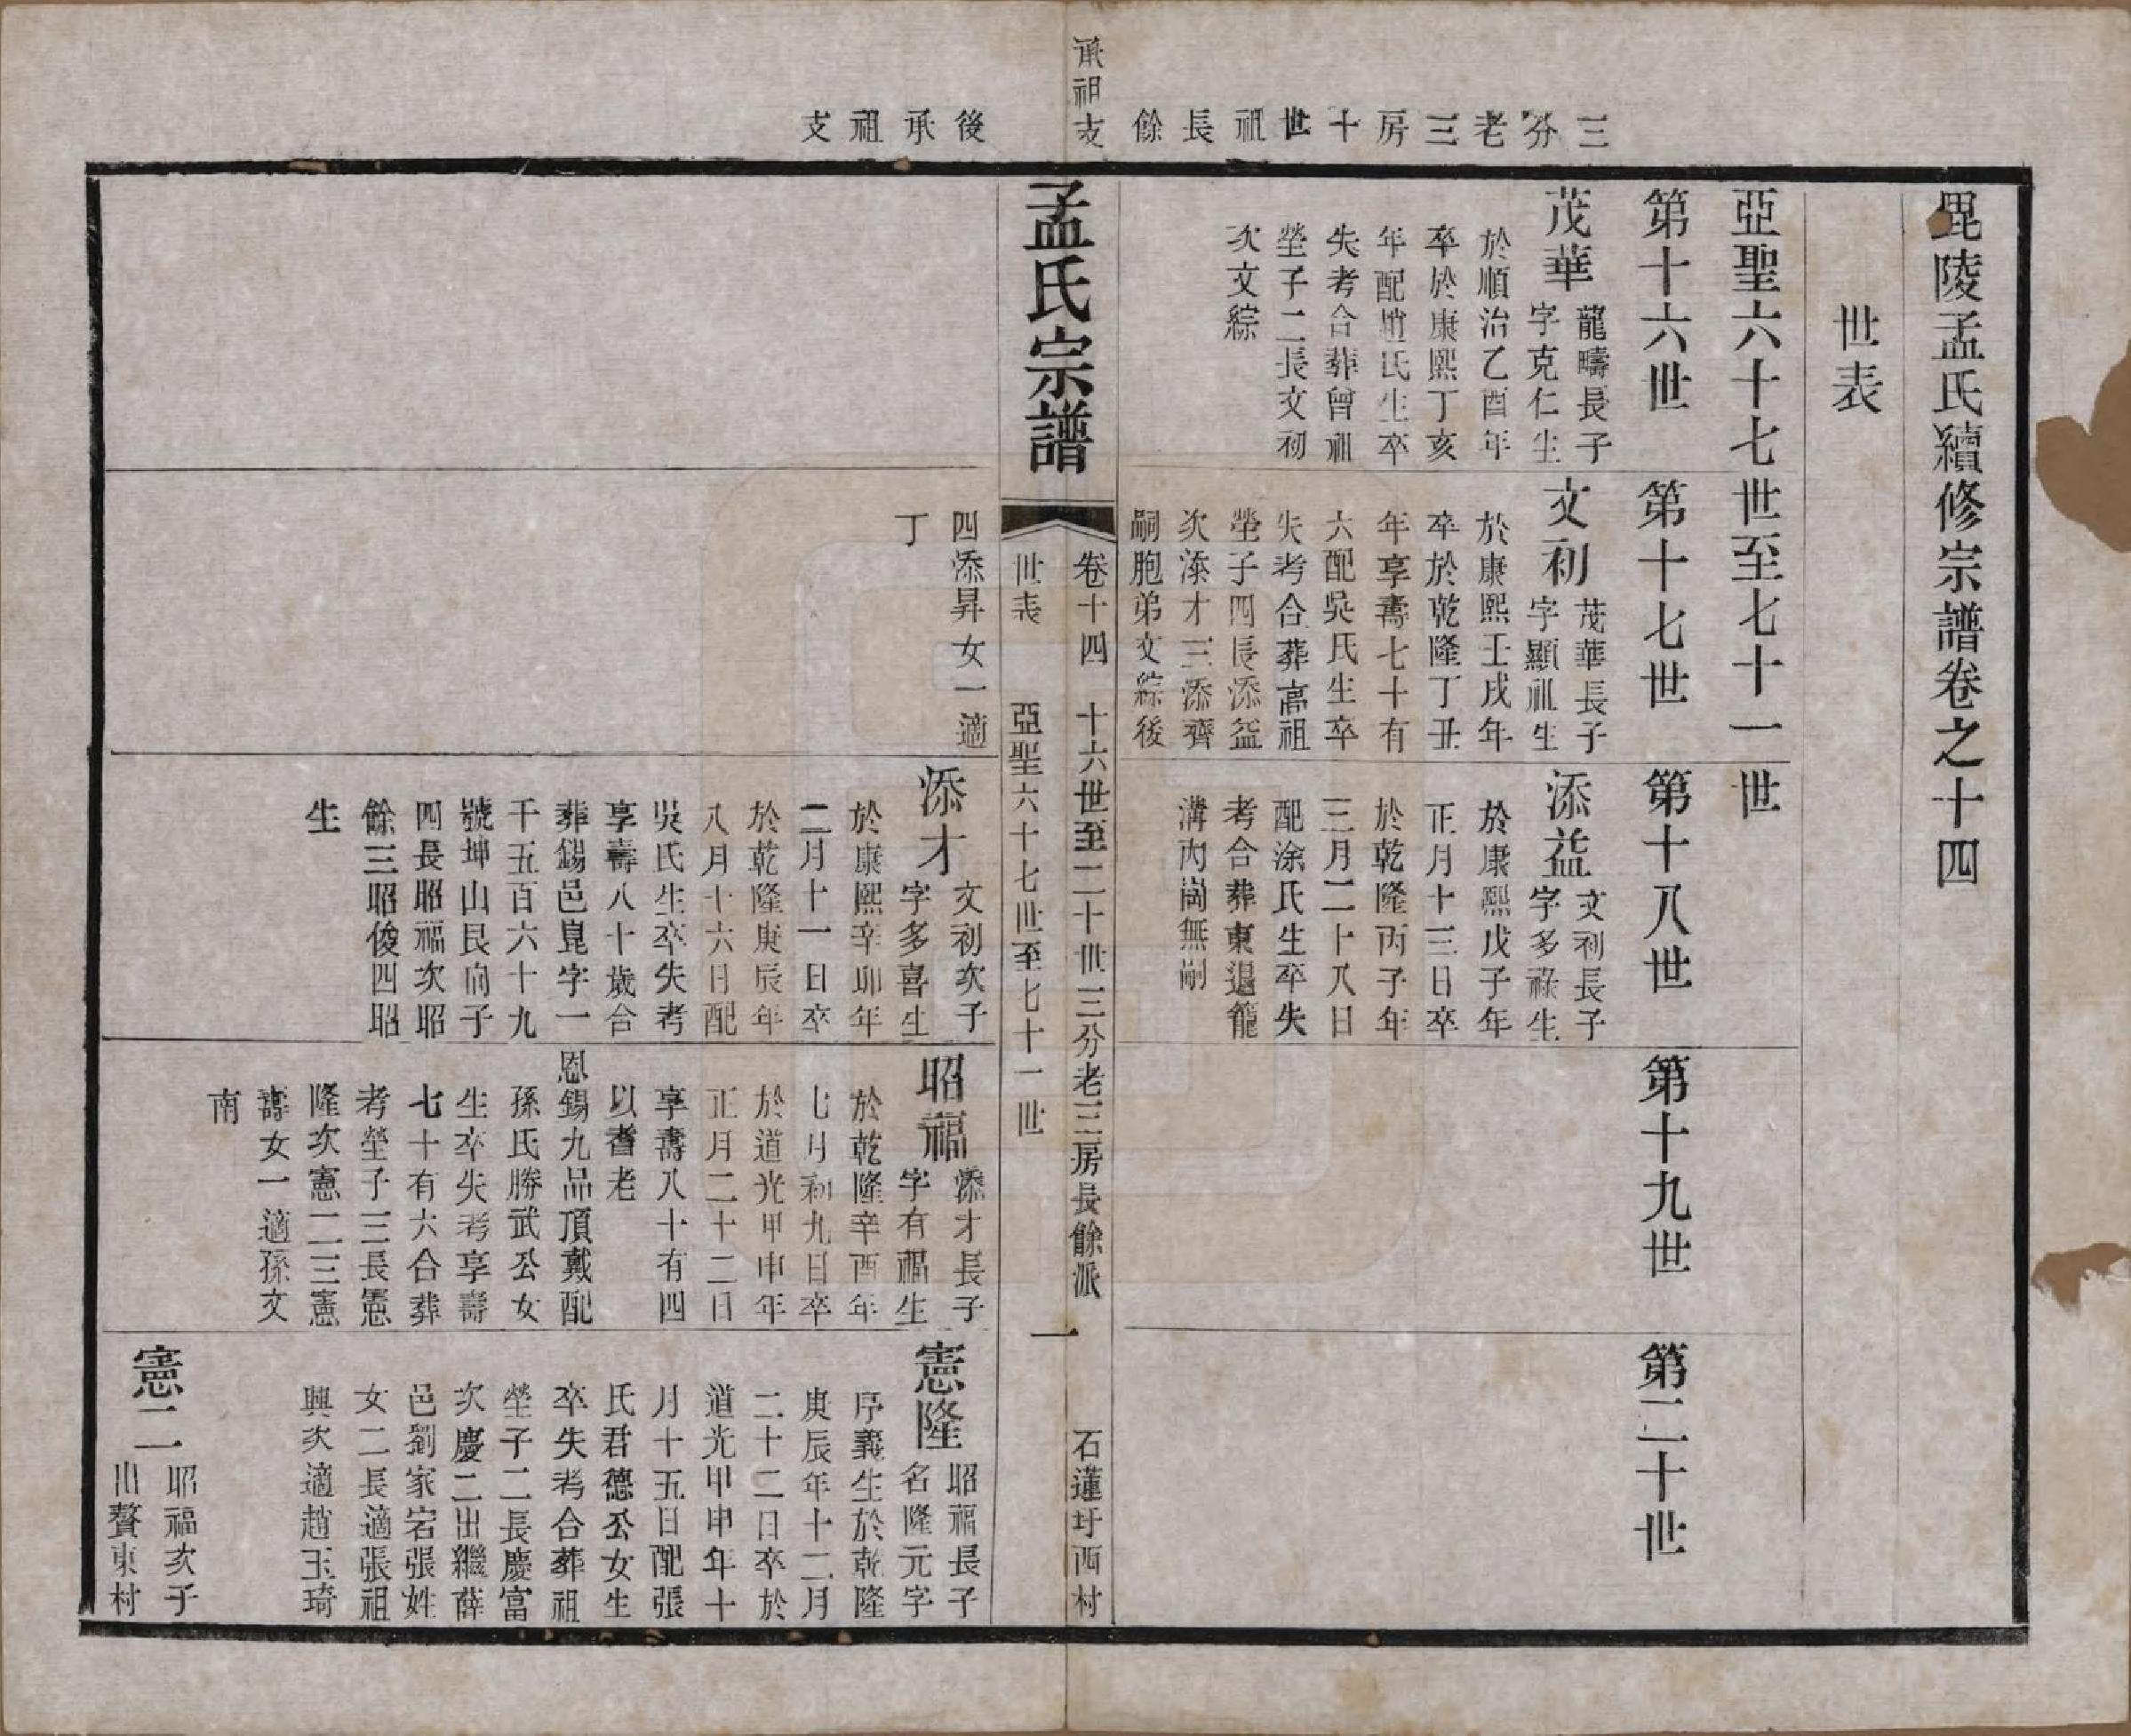 三分老三房十世祖長餘
承祖支
後承祖支
毘陵孟氏續修宗譜卷之十四
世表
亞聖六十七世至七十一世
第十六世
第十七世
第十八世
第十九世
第二十世
茂華
龍疇長子
字克仁生
於順治乙酉年
卒於康熙丁亥
年配趙氏生卒
失考合葬曾祖
塋子二長文初
次文綜
文初
茂華長子
字顯祖生
於康熙壬戌年
卒於乾隆丁丑
年享壽七十有
六配吳氏生卒
失考合葬高祖
塋子四長添益
次添才三添齊
嗣胞弟文綜後
添益
文初長子
字多祿生
於康熙戊子年
正月十三日卒
於乾隆丙子年
三月二十八日
配涂氏生卒失
考合葬東退籠
溝內崗無嗣
孟氏宗譜
卷十四
十六世至二十世三分老三房長餘派
石蓮圩西村
世表
亞聖六十七世至七十一世
一
四添昇女一適
丁
添才
文初次子
字多喜生
於康熙辛卯年
二月十一日卒
於乾隆庚辰年
八月十六日配
吳氏生卒失考
享壽八十歲合
葬錫邑崑字一
千五百六十九
號坤山艮向子
四長昭福次昭
餘三昭俊四昭
生
昭福
添才長子
字有福生
於乾隆辛酉年
七月初九日卒
於道光甲申年
正月二十二日
享壽八十有四
以耆老
恩錫九品頂戴配
孫氏勝武公女
生卒失考享壽
七十有六合葬
考塋子三長憲
隆次憲二三憲
壽女一適孫文
南
憲隆
昭福長子
名隆元字
序義生於乾隆
庚辰年十二月
二十二日卒於
道光甲申年十
月十五日配張
氏君德公女生
卒失考合葬祖
塋子二長慶富
次慶二出繼薛
邑劉家宕張姓
女二長適張祖
興次適趙玉琦
憲二
昭福次子
出贅東村